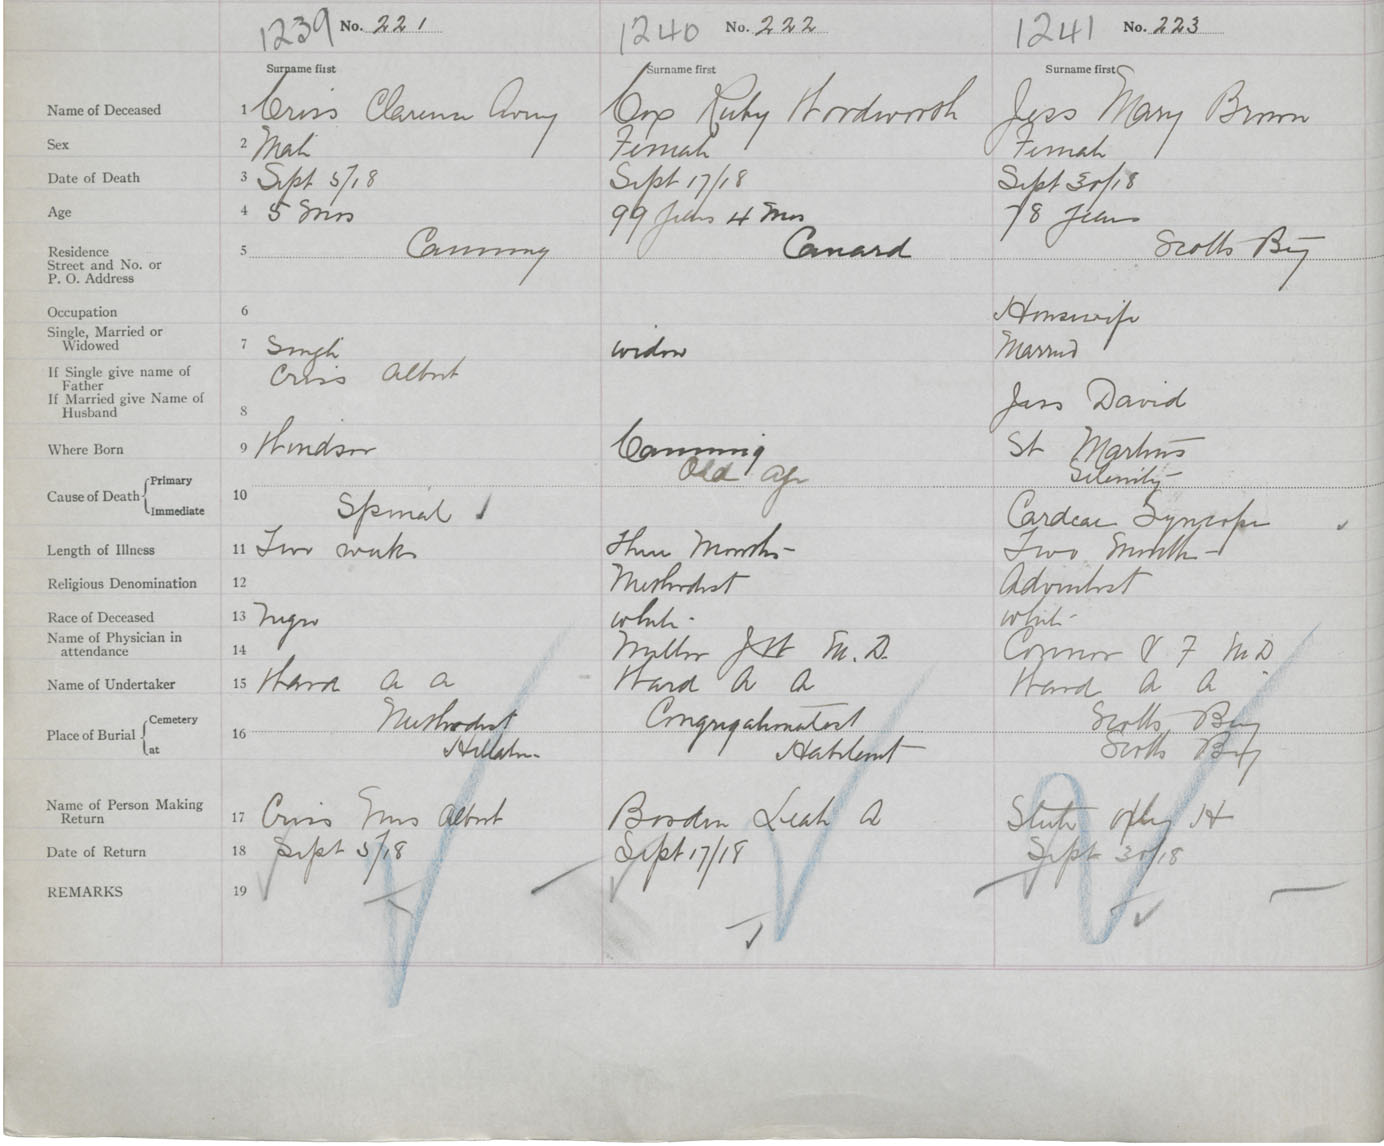 1239 No. 221 1240 No. 222 1241 No. 223
Surname first Surname first Surname first
Name of Deceased 1 Criss Clarence Avery Cox Ruby Wordsworth Jess Mary Brown
Sex 2 Male Female Female
Date of Death 3 Sept 5/18 Sept 17/18 Sept 30/18
Age 4 5 Mos 99 Years 4 Mos 78 Years
Residence
Street and No. or
P. O. Address
5 Canning Canard Scotts Bay
Occupation 6 Housewife
Single, Married or
Widowed
7 Single widow Married
If Single give name of
Father
Criss Albert
If Married give Name of
Husband
8 Jess David
Where Born 9 Windsor Canning St Martins
Cause of Death Primary Old Age Senility
Immediate 10 Spinal Cardeac Syncope
Length of Illness 11 Two weeks Three Months Two Months
Religious Denomination 12 Methodist Adventist
Race of Deceased 13 Negro white white
Name of Physician in
attendance
14 Miller J W M.D. Connor F M D
Name of Undertaker 15 Ward A A Ward A A Ward A A
Place of Burial Cemetery 16 Methodist Congregationalist Scotts Bay
at Hillaton Habitant Scotts Bay
Name of Person Making
Return
17 Criss Mrs Albert Borden Leah A Steele H
Date of Return 18 Sept 5/18 Sept 17/18 Sept 30/18
REMARKS 19